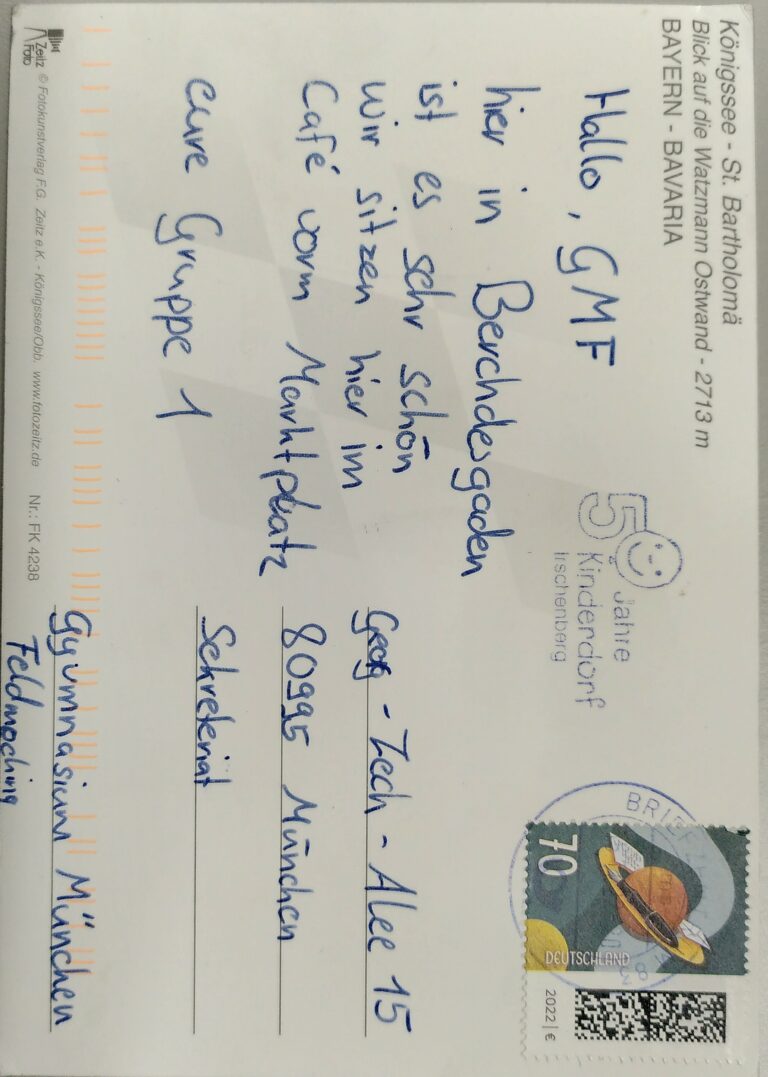 Königssee - St. Bartholomä
Blick auf die Watzmann Ostwand - 2713 m
BAYERN - BAVARIA
Hallo, GMF
hier in Berchdesgaden
ist es sehr schön
wir sitzen hier im
Café vorm Marktplatz
eure Gruppe 1
50 Jahre
Kinderdorf
Irschenberg
BRIEF
70
DEUTSCHLAND
2022 | €
Georg - Zech - Alee 15
80995 München
Sekreteriat
Gyumnasium München
Feldmoching
Zeitz
Foto
© Fotokunstverlag F.G. Zeitz e.K. - Königssee/Obb. www.fotozeitz.de Nr.: FK 4238